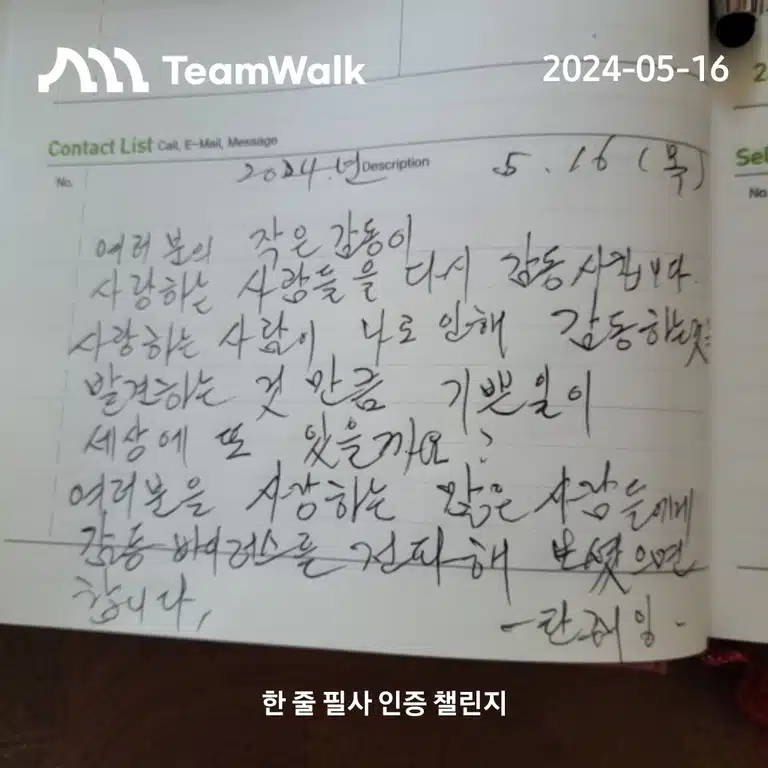 TeamWalk
2024-05-16
Contact List Call, E-Mail, Message
No. Description
2024.년 5.16 (목)
여러분의 작은 감동이
사랑하는 사람들을 다시 감동시킵니다.
사랑하는 사람이 나로 인해 감동하는
발견하는 것 만큼 기쁜일이
세상에 또 있을까요?
여러분을 사랑하는 많은 사람들에게
감동 바이러스를 전파해 보셨으면
합니다,
Sel
No
한 줄 필사 인증 챌린지